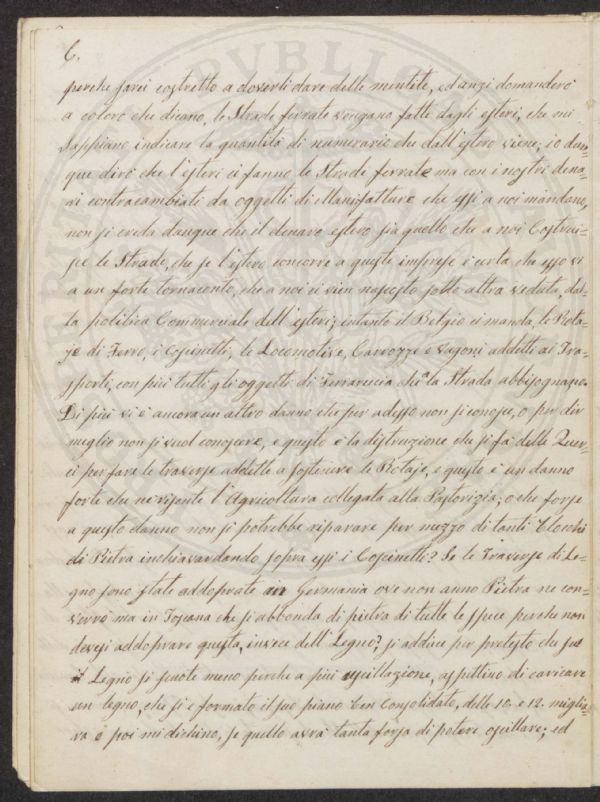 6.
perche sarei costretto a doverli dare delle mentite, ed anzi domanderò
a coloro che dicano, le Strade ferrate vengano fatte dagli esteri, che mi
sappiano indicare la quantità di numerario che dall'estero viene; io dun-
que dirò che l'esteri ci fanno le Strade ferrate ma con i nostri dena-
ri contracambiati da oggetti di Manifatture che essi a noi mandano,
non si creda dunque che il denaro estero sia quello che a noi Costrui-
sce le Strade, che se l'estero concorre a queste imprese è certo che esso vi
a un forte tornaconto, che a noi vi vien nascosto sotto altra veduta, dal-
la politica Commerciale dell'esteri; intanto il Belgio ci manda, le Rota-
je di Ferro, i Coscinetti, le Locomotive, Carrozze e Vagoni addetti ai Tra-
sporti, con più tutti gli oggetti di Ferrareccia che la Strada abbisognano.
Di più vi è ancora un altro danno che per adesso non si conosce, o per dir
meglio non si vuol conoscere, e questo è la distruzione che si fà delle Quer-
ci per fare le traverse addette a sostenere le Rotaje, e questo è un danno
forte che ne risente l'Agricoltura collegata alla Pastorizia; o che forse
a questo danno non si potrebbe riparare per mezzo di tanti Blocchi
di Pietra inchiavardando sopra essi i Coscinetti? Se le Traverse di Le-
gno sono state addoprate in Germania ove non anno Pietra ne con-
verrò ma in Toscana che si abbonda di pietra di tutte le specie perche non
devesi addoprare questa, invece dell'Legno? si adduce per pretesto che sul
Legno si scuote meno perche a più oscillazione, aspettino di caricare
un legno, che si è formato il suo piano ben Consolidato, delle 10 e 12 miglia-
ra e poi mi dichino, se quello avrà tanta forza di potere oscillare; ed